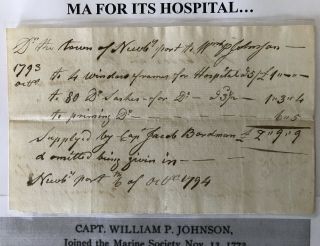 MA FOR ITS HOSPITAL…
Dr the town of Newby port to Wm P Johnson
1793
Octr
to 4 Window frames for Hospital @ 5/ £ 1
to 80 Do Sashes for Do @ 3½ 1 3 4
to priming Do 6 5
Supplyed by Cap Jacob Boardman £ 2 9 9
& omitted being given in
Newby port 6 of Octr 1794
CAPT. WILLIAM P. JOHNSON,
Joined the Marine Society Nov. 13, 1773